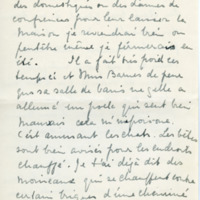 des domestiques ou des dames de
conférences pour leur laisser la
maison je reviendrai bien ou
peut être même je fermerais en
été. Il a fait très froid ces
temps ci et Miss Barnes de peur
que sa salle de bains ne gèle a
allumé un poêle qui sent bien
mauvais cela m'
C'est amusant les chats. Les bêtes
sont bien avisés pour les endroits
chauffé. Je t'ai déjà dit des
moineaux qui se chauffent contre
certain briques d'une cheminé